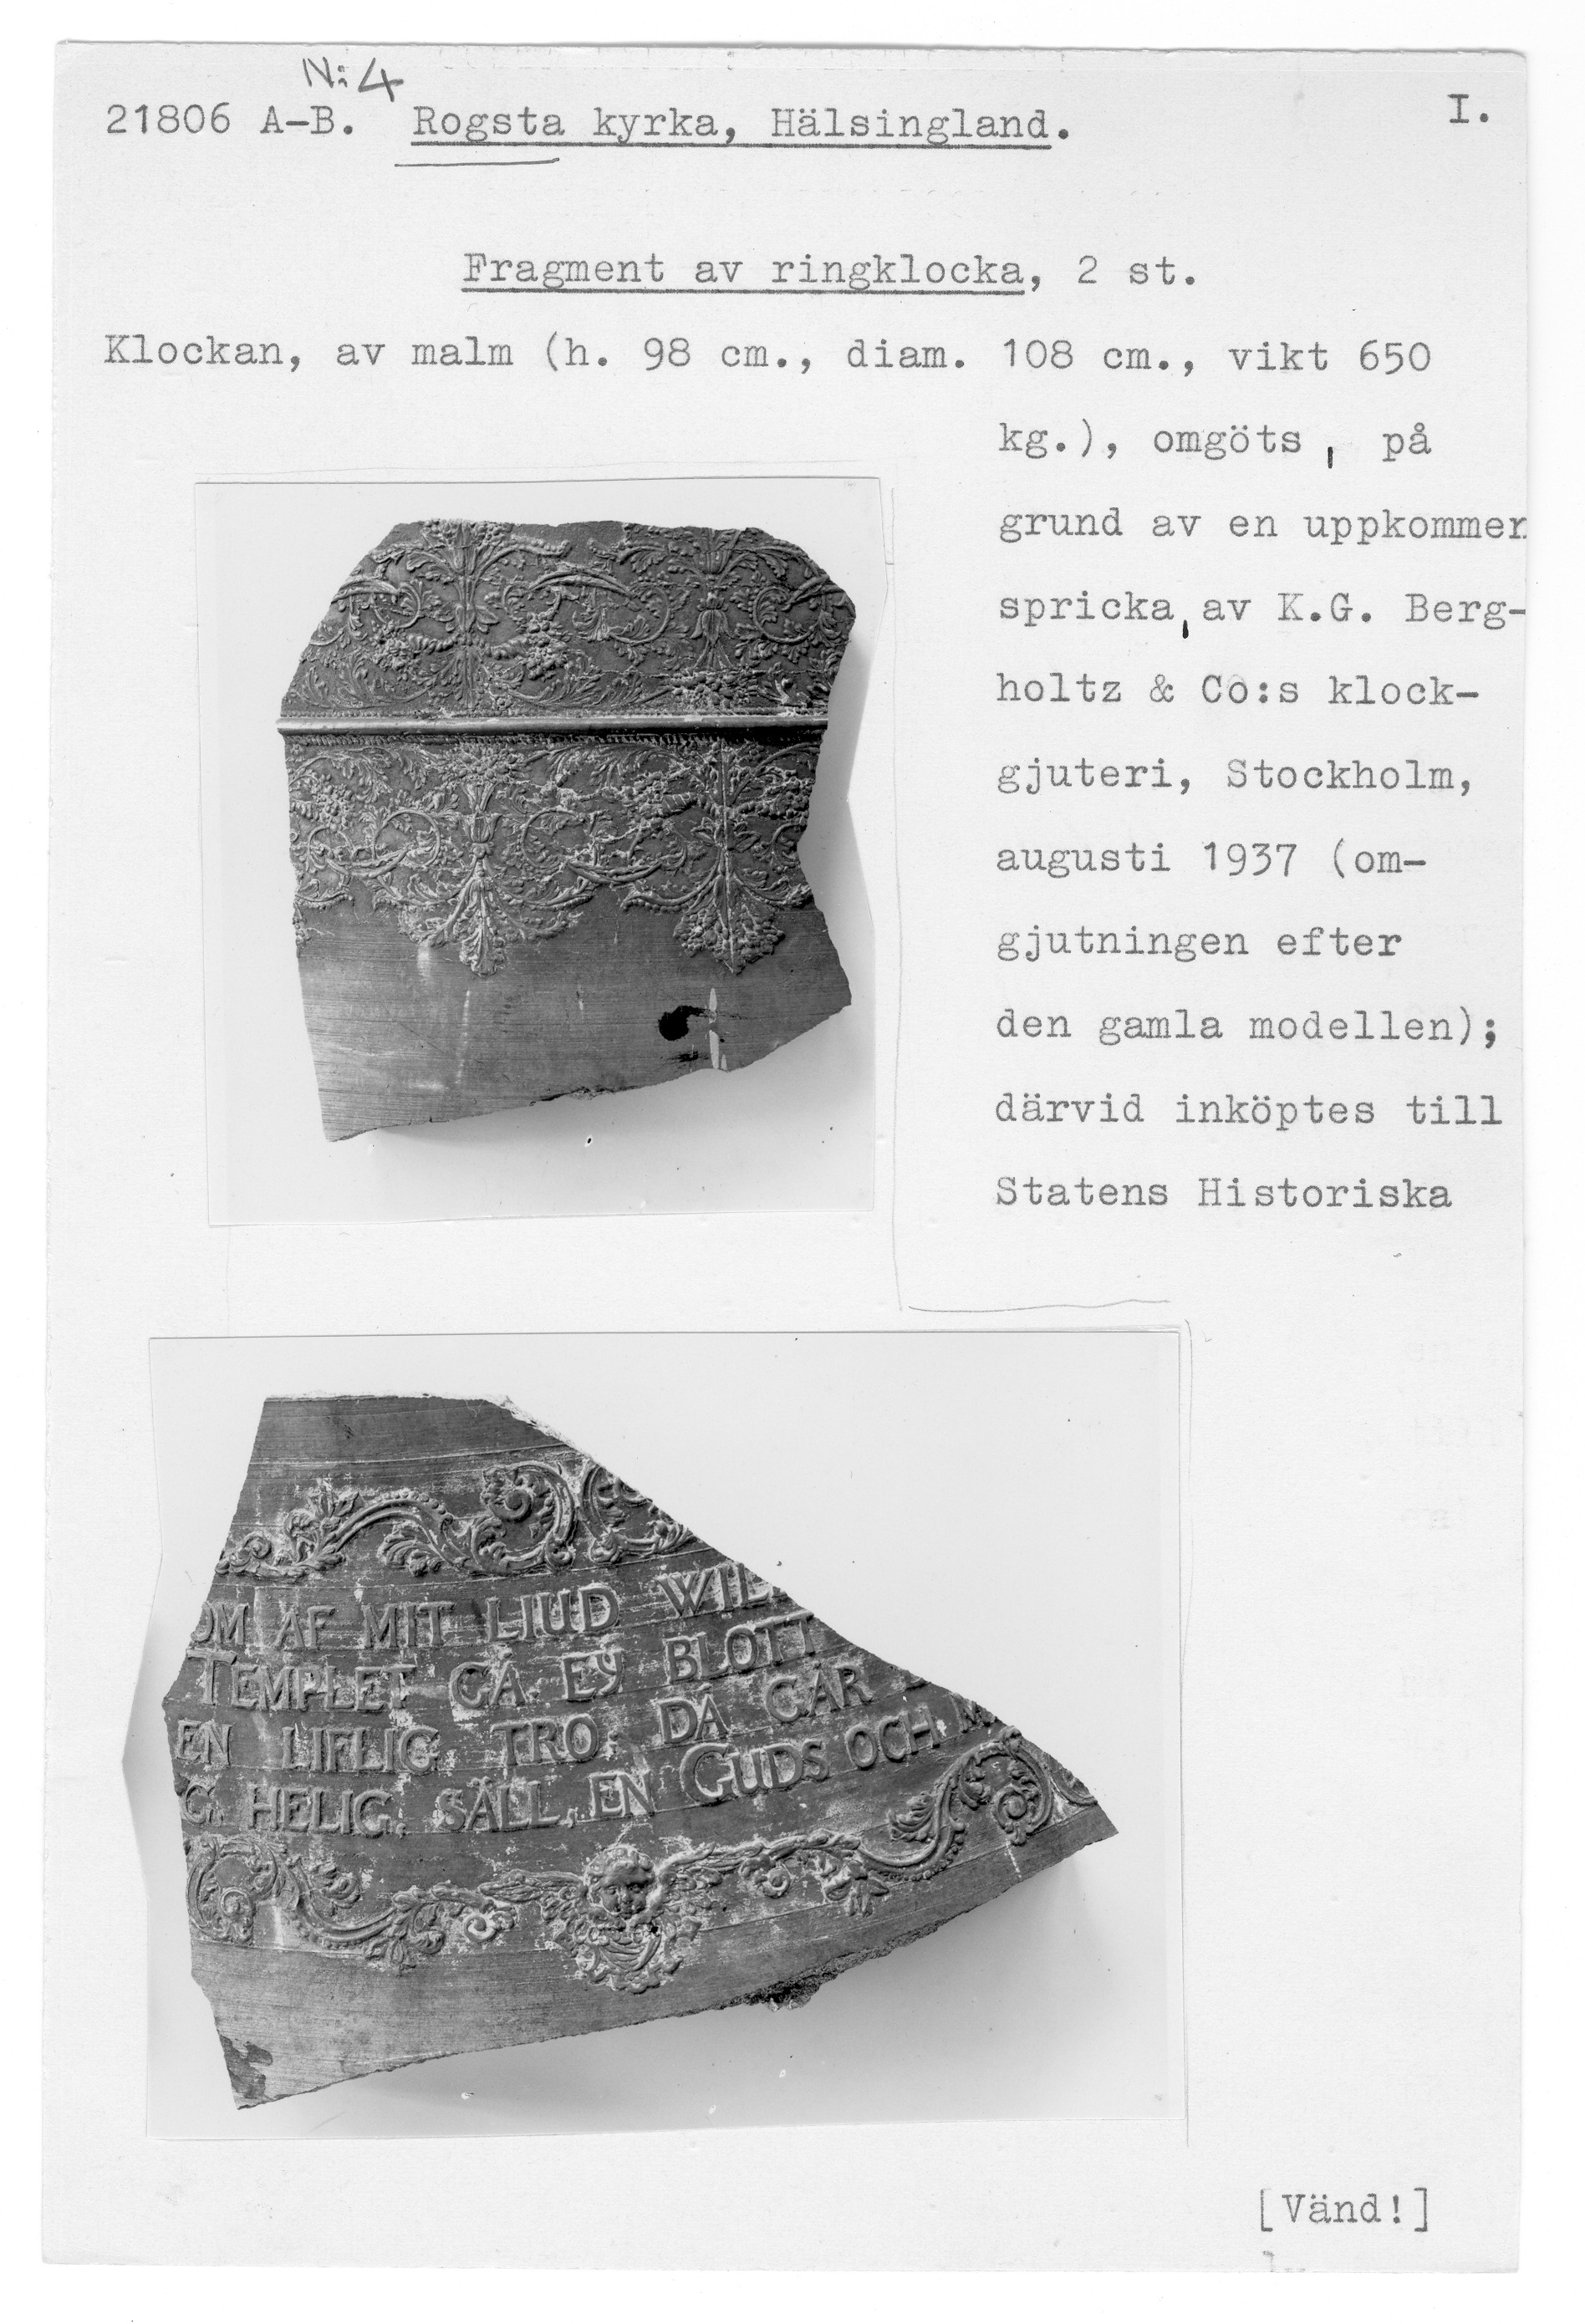 N:4
21806 A-B. Rogsta kyrka, Hälsingland. I.
Fragment av ringklocka, 2 st.
Klockan, av malm (h. 98 cm., diam. 108 cm., vikt 650
kg.), omgöts, på
grund av en uppkommen
spricka, av K.G. Berg-
holtz & Co:s klock-
gjuteri, Stockholm,
augusti 1937 (om-
gjutningen efter
den gamla modellen);
därvid inköptes till
Statens Historiska
OM AF MIT LIUD WIL
TEMPLET GÅ EY BLOTT
EN LIFLIG TRO: DÅ GÅR
G. HELIG, SÄLL, EN GUDS OCH
[Vänd!]